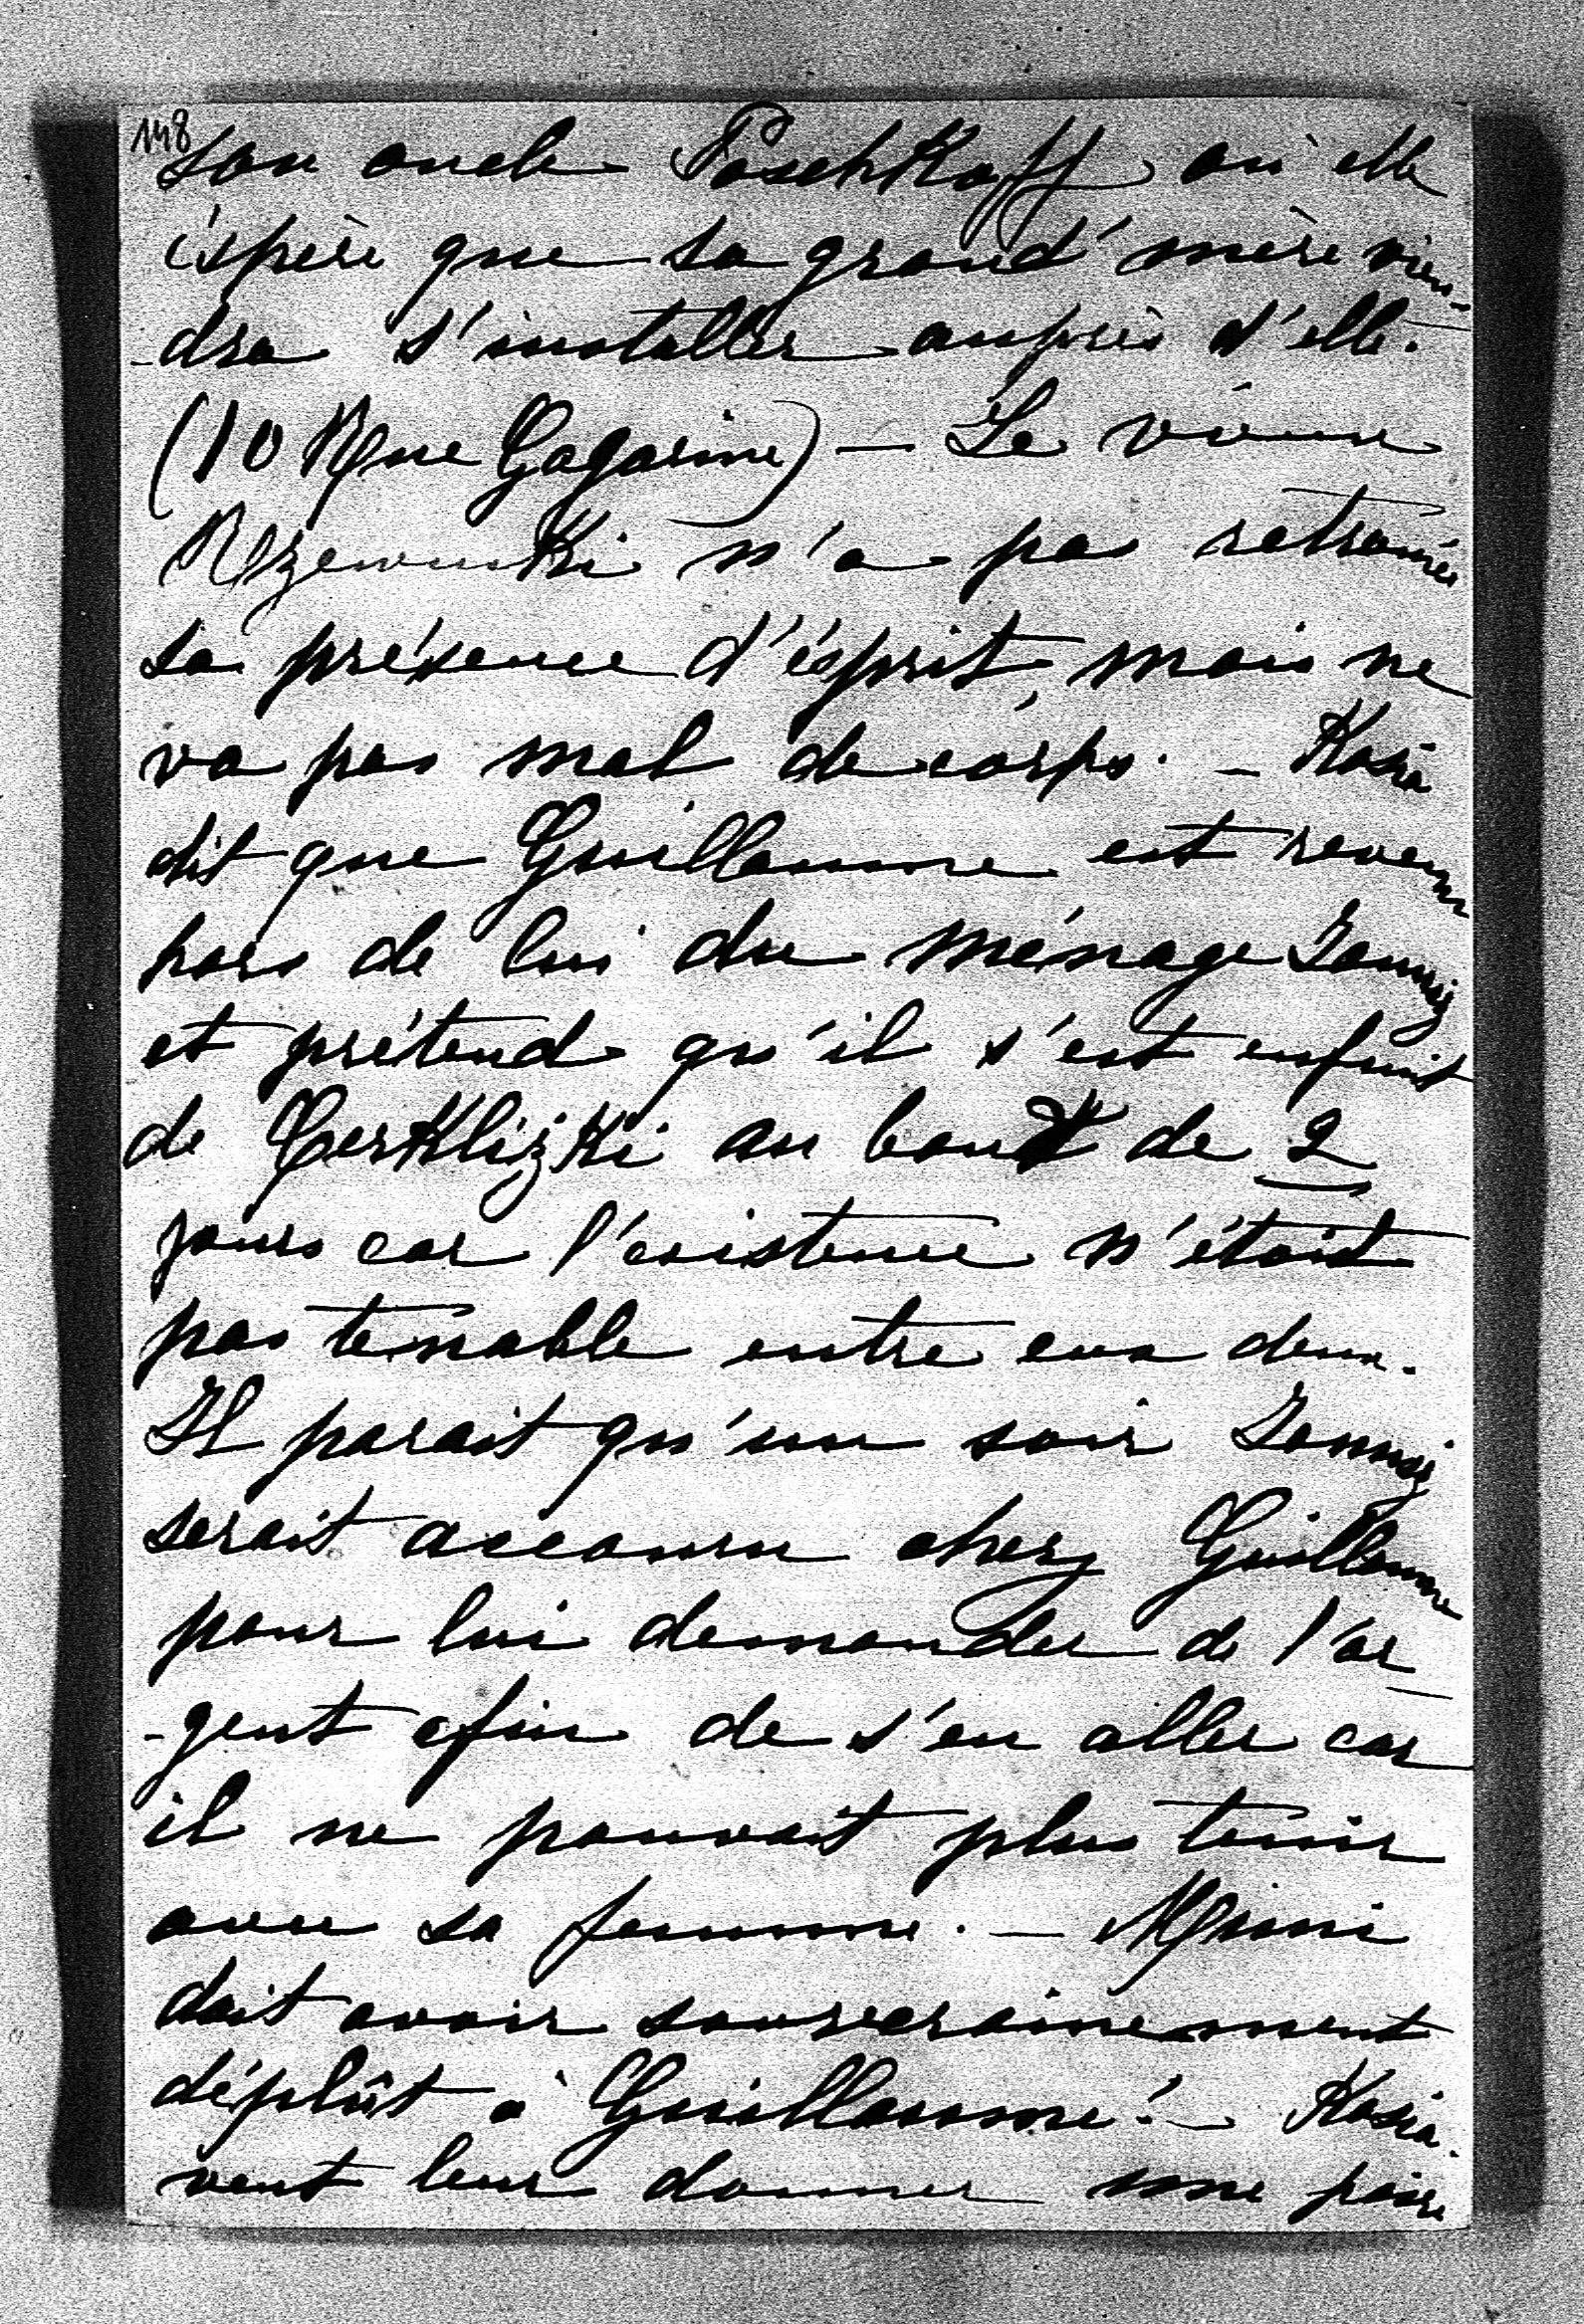 148
son oncle Paschkoff où elle
éspère que sa grand'mère vien-
-dra s'installer auprès d'elle.
(10 Rue Gagarine) — Le vieux
Rzewuski n'a pas retrouvé
sa présence d'ésprit, mais ne
va pas mal de corps. — Kasia
dit que Guillaume est revenu
hors de lui du ménage
et prétend qu'il s'est enfuit
de au bout de 2
jours car l'existence n'était
pas tenable entre eux deux.
Il parait qu'un soir
serait accouru chez Guillaume
pour lui demander de l'ar
-gent afin de s'en aller car
il ne pouvait plus tenir
avec sa femme. — Mimi
doit avoir souverainement
déplût à Guillaume! — Kasia
veut leur donner une paire